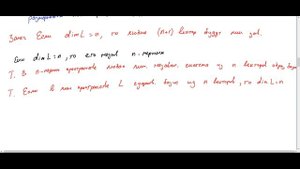 Замеч. Если dim L = n, то любые (n+1) вектор будут лин. зав.
Если dim L = n, то его назыв. n-мерным
Т. В n-мерн. пространстве любая лин. независ. система из n векторов образ. базис
Т. Если в лин. пространстве L существ. базис из n векторов, то dim L = n